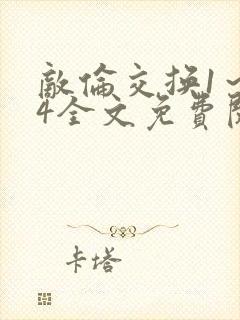 敵倫交换1〜
4全文免費閱
卡塔